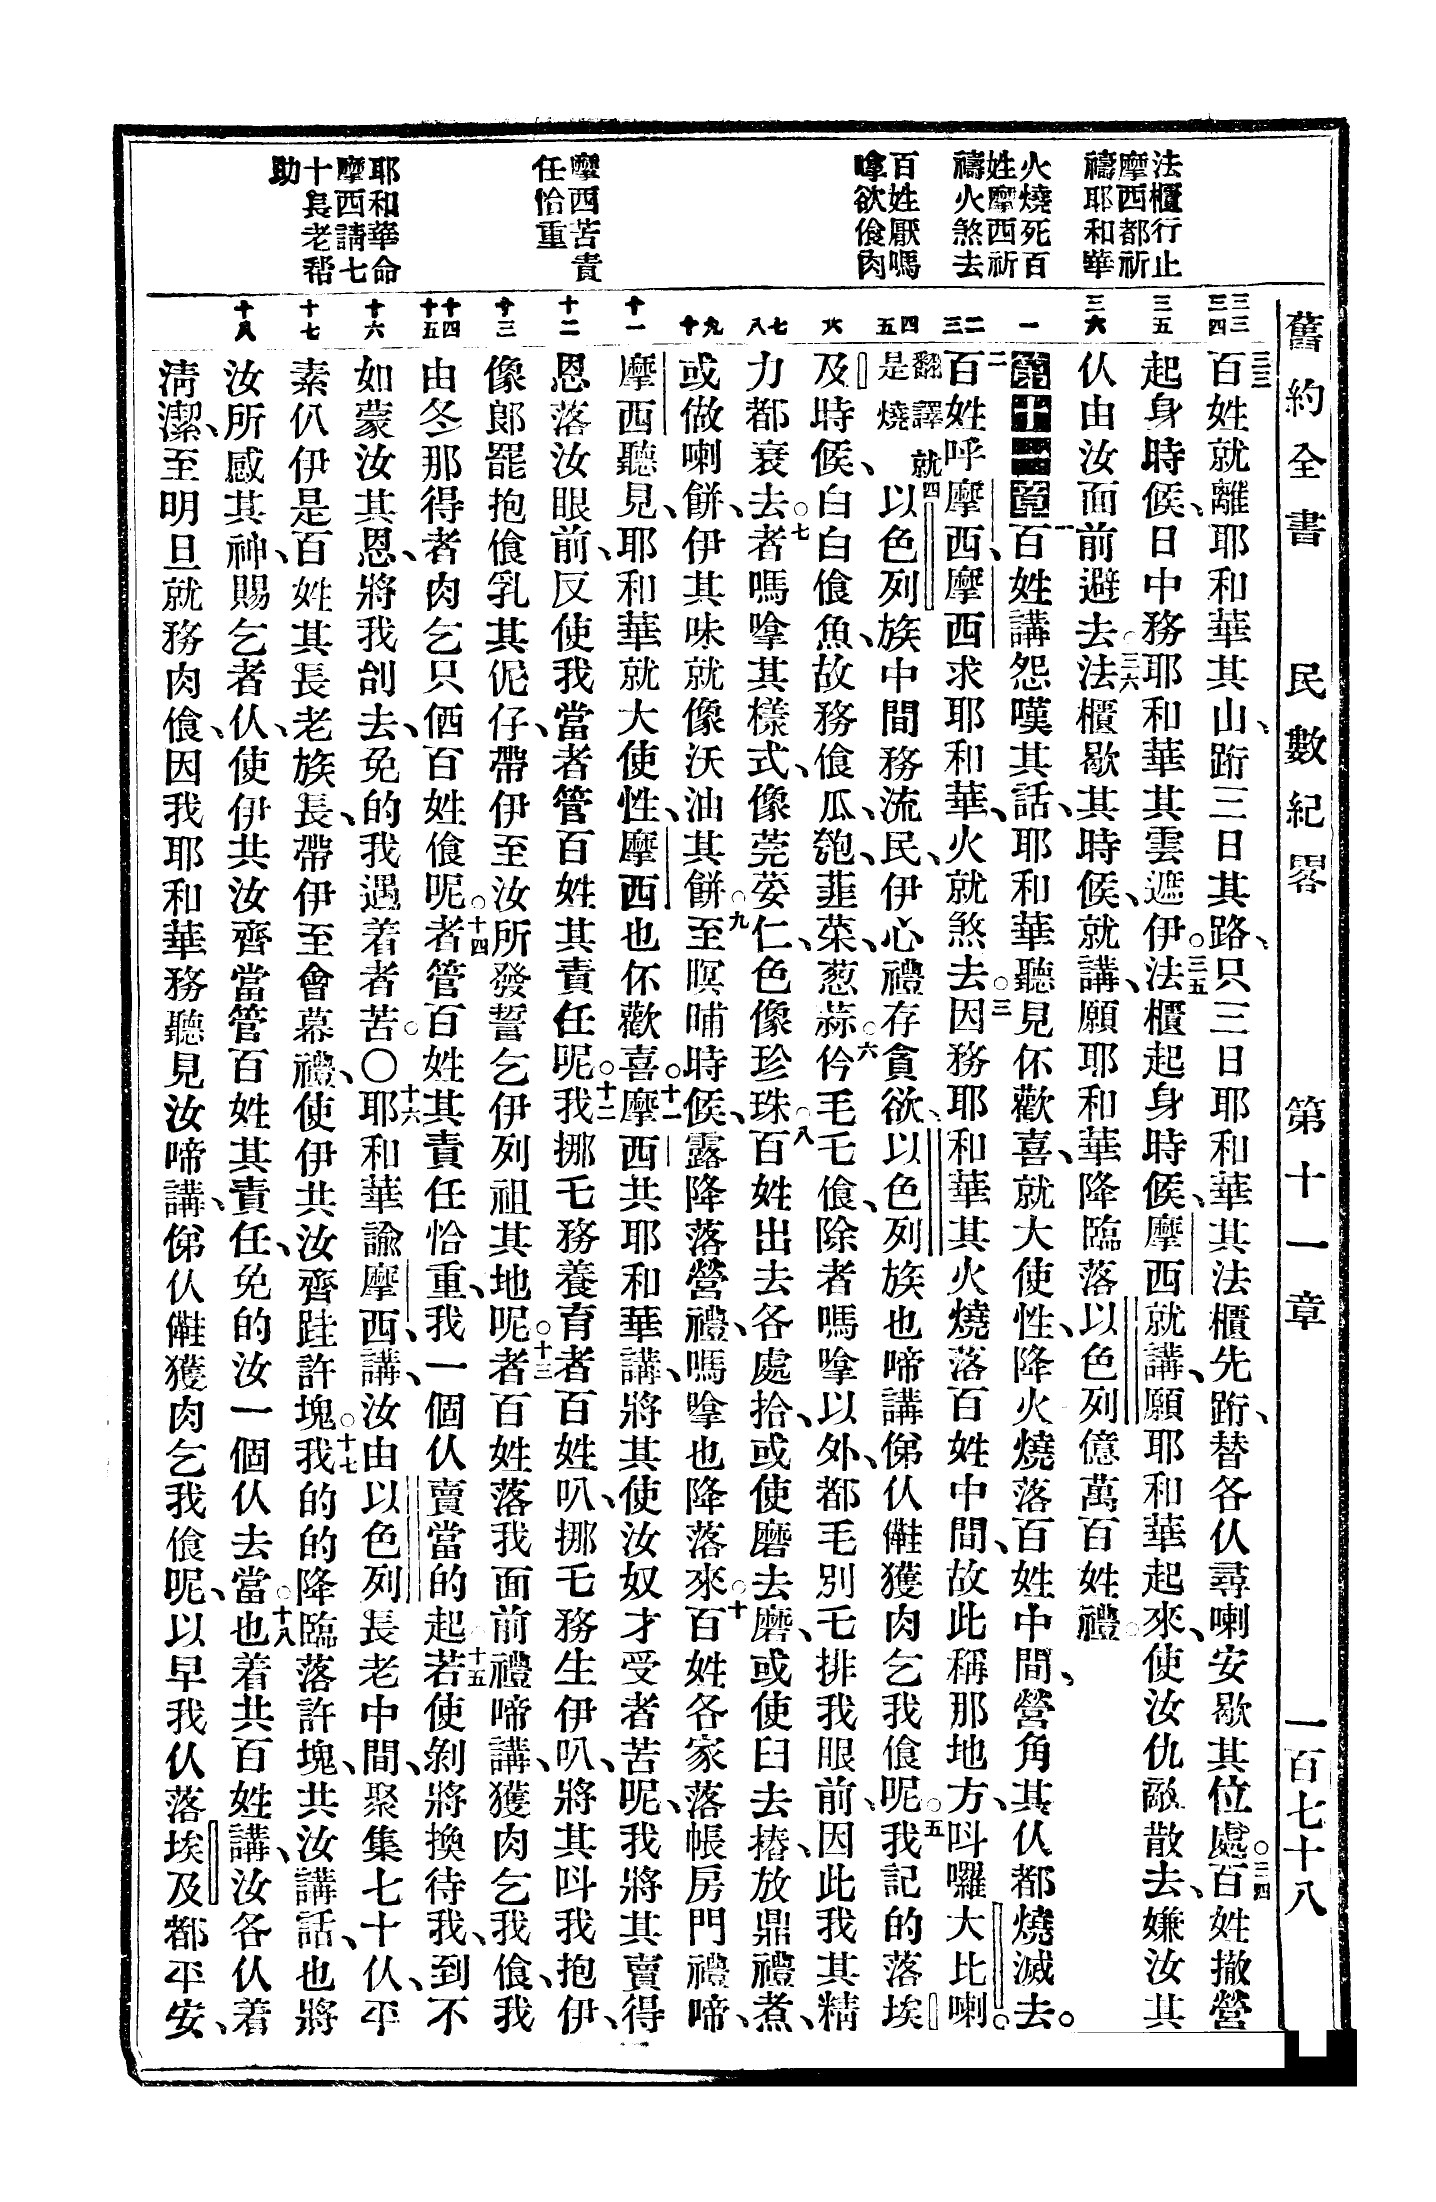 舊約全書　民數紀畧　第十一章　一百七十八
法櫃行止
摩西都祈
禱耶和華
火燒死百
姓摩西祈
禱火煞去
百姓厭嗎
嗱欲飡肉
摩西苦責
任恰重
耶和華命
摩西請七
十長老幫
助
三三
三四
三五
三六
一
二
三
四
五
六
七
八
九
十
十一
十二
十三
十四
十五
十六
十七
十八
三三百姓就離耶和華其山、跲三日其路、只三日耶和華其法櫃先跲、替各仈尋喇安歇其位處。三四百姓撤營
起身時候、日中務耶和華其雲遮伊。三五法櫃起身時候、摩西就講、願耶和華起來、使汝仇敵散去、嫌汝其
仈由汝面前避去。三六法櫃歇其時候、就講、願耶和華降臨落以色列億萬百姓禮。
第十一章一百姓講怨嘆其話、耶和華聽見伓歡喜、就大使性、降火燒落百姓中間、營角其仈都燒滅去。
二百姓呼摩西、摩西求耶和華、火就煞去。三因務耶和華其火燒落百姓中間、故此稱那地方、呌囉大比喇。
翻譯就
是燒
四以色列族中間務流民、伊心禮存貪欲、以色列族也啼講、俤仈㒕獲肉乞我飡呢。五我記的落埃
及時候、白白飡魚、故務飡瓜、匏、韮菜、葱蒜。六仱毛乇飡、除者嗎嗱以外、都毛別乇排我眼前、因此我其精
力都衰去。七者嗎嗱其樣式、像莞荽仁、色像珍珠。八百姓出去各處拾、或使磨去磨、或使臼去摏、放鼎禮煮、
或做喇餅、伊其味就像沃油其餅。九至暝晡時候、露降落營禮、嗎嗱也降落來。十百姓各家落帳房門禮啼、
摩西聽見、耶和華就大使性、摩西也伓歡喜。十一摩西共耶和華講、將其使汝奴才受者苦呢、我將其賣得
恩落汝眼前、反使我當者管百姓其責任呢。十二我挪乇務養育者百姓叭、挪乇務生伊叭、將其呌我抱伊、
像郎罷抱飡乳其伲仔、帶伊至汝所發誓乞伊列祖其地呢。十三者百姓落我面前禮啼講、獲肉乞我飡、我
由冬那得者肉乞只㑚百姓飡呢。十四者管百姓其責任恰重、我一個仈賣當的起。十五若使剝將換待我、到不
如蒙汝其恩、將我刣去、免的我遇着者苦。〇十六耶和華諭摩西講、汝由以色列長老中間、聚集七十仈、平
素仈伊是百姓其長老族長、帶伊至會幕禮、使伊共汝齊跬許塊。十七我的的降臨落許塊、共汝講話、也將
汝所感其神、賜乞者仈、使伊共汝齊當管百姓其責任、免的汝一個仈去當。十八也着共百姓講、汝各仈着
清潔、至明旦就務肉飡、因我耶和華務聽見汝啼講、俤仈㒕獲肉乞我飡呢、以早我仈落埃及都平安、